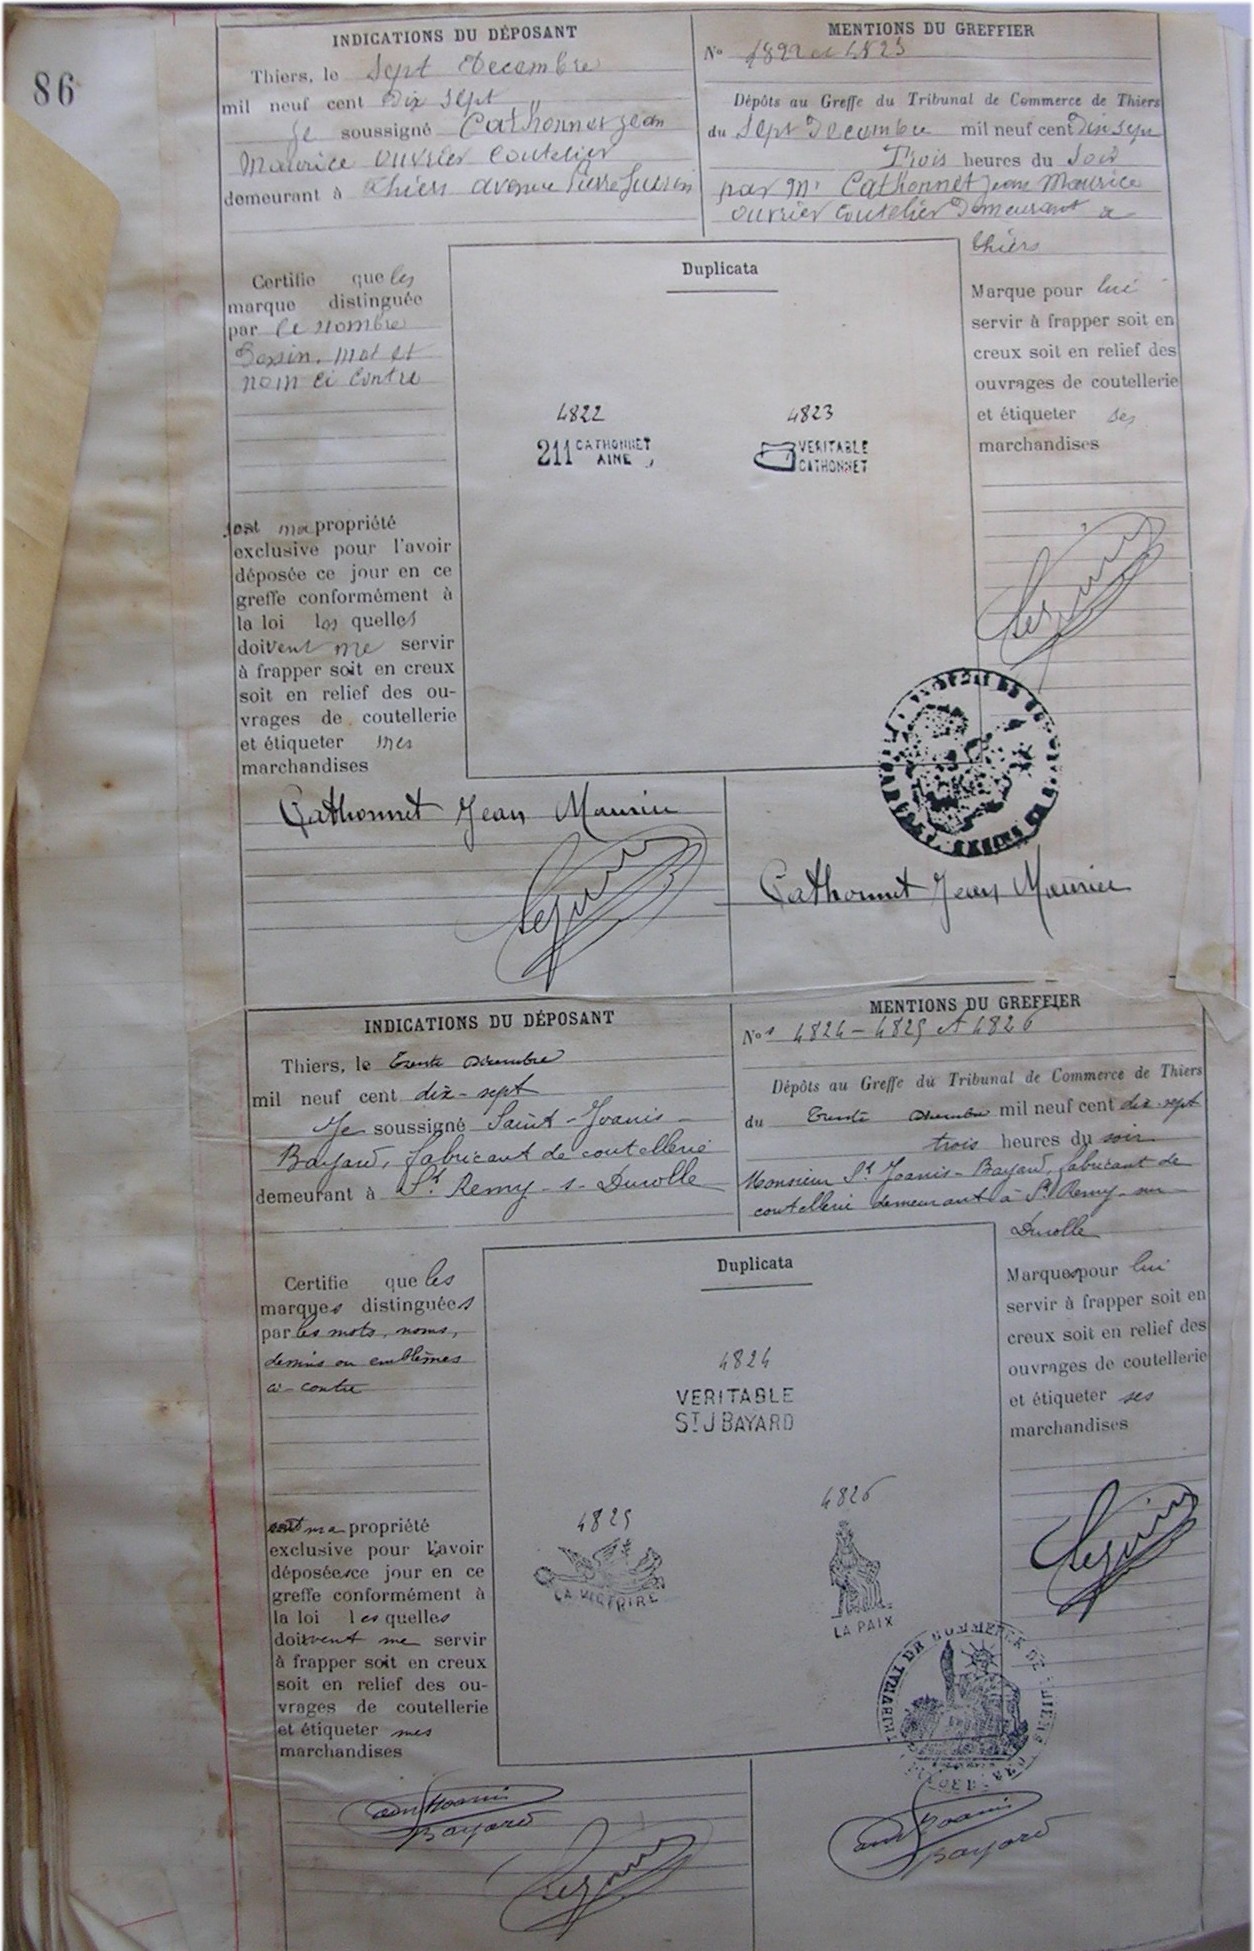 86
INDICATIONS DU DÉPOSANT
Thiers, le Sept Decembre
mil neuf cent Dix Sept
Je soussigné Cathonnet Jean
Maurice ouvrier coutelier
demeurant à thiers avenue Pierre Guerin
MENTIONS DU GREFFIER
No 4822 et 4823
Dépôts au Greffe du Tribunal de Commerce de Thiers
du Sept Decembre mil neuf cent Dix Sept
Trois heures du Soir
par Mr Cathonnet Jean Maurice
ouvrier coutelier Demeurant a
thiers
Certifie que les
marque distinguée
par le nombre
Dessin, mot et
nom ci contre
sont ma propriété
exclusive pour l'avoir
déposée ce jour en ce
greffe conformément à
la loi les quelles
doivent me servir
à frapper soit en creux
soit en relief des ou-
vrages de coutellerie
et étiqueter mes
marchandises
Duplicata
4822
211 CATHONNET
AINE
4823
VERITABLE
CATHONNET
Marque pour lui
servir à frapper soit en
creux soit en relief des
ouvrages de coutellerie
et étiqueter ses
marchandises
Cathonnet Jean Maurice
Cathonnet Jean Maurice
INDICATIONS DU DÉPOSANT
Thiers, le Trente Décembre
mil neuf cent dix-sept
Je soussigné Saint-Joanis-
Bayard, fabricant de coutellerie
demeurant à St Remy-s-Durolle
MENTIONS DU GREFFIER
Nos 4824-4825 et 4826
Dépôts au Greffe du Tribunal de Commerce de Thiers
du Trente Décembre mil neuf cent dix-sept
trois heures du soir
Monsieur St Joanis-Bayard, fabricant de
coutellerie demeurant à St Remy-sur
Durolle
Certifie que les
marques distinguées
par les mots, noms,
dessins ou emblèmes
ci-contre
sont ma propriété
exclusive pour l'avoir
déposées ce jour en ce
greffe conformément à
la loi les quelles
doivent me servir
à frapper soit en creux
soit en relief des ou-
vrages de coutellerie
et étiqueter mes
marchandises
Duplicata
4824
VERITABLE
ST J BAYARD
4825
LA VICTOIRE
4826
LA PAIX
Marques pour lui
servir à frapper soit en
creux soit en relief des
ouvrages de coutellerie
et étiqueter ses
marchandises
TRIBUNAL DE COMMERCE DE THIERS
Bayard
Bayard